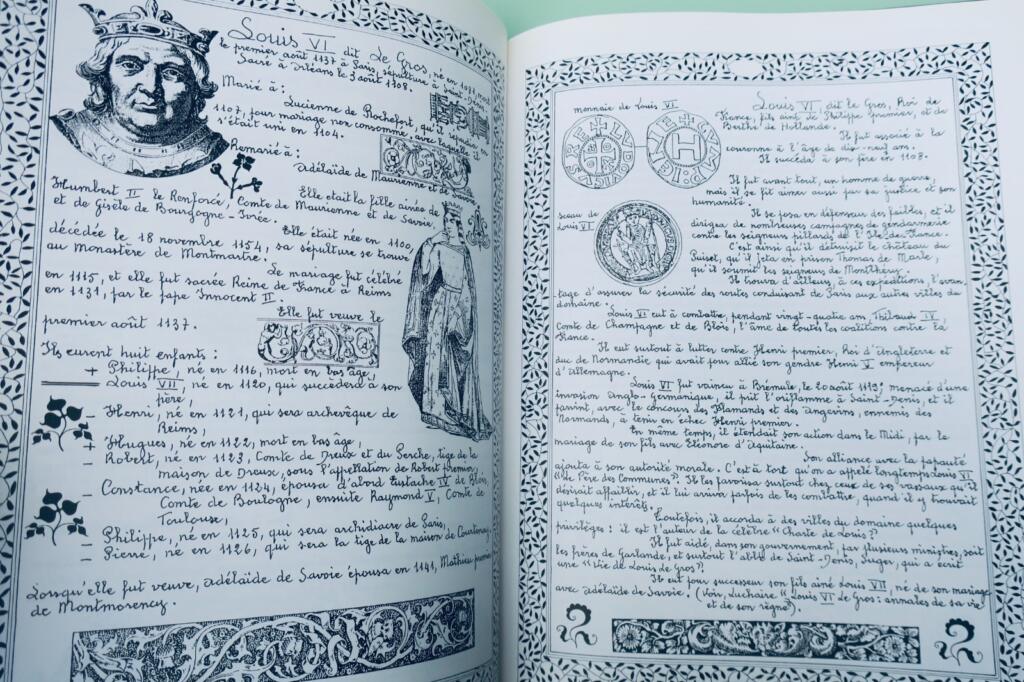 Louis VI dit Le Gros, né en 1078, mort
le premier août 1137 à Paris, sépulture à Saint-Denis.
Sacré à Orléans le 3 août 1108.
Marié à :
Lucienne de Rochefort, qu'il répudia, en
1107, pour mariage non consommé, avec laquelle il
s'était uni en 1104.
Remarié à :
adélaïde de Maurienne et de Savoie
Elle était la fille aînée de
Humbert II le Renforcé, Comte de Maurienne et de Savoie
et de Gisèle de Bourgogne-Ivrée.
Elle était née en 1100,
décédée le 18 novembre 1154, sa sépulture se trouve
au Monastère de Montmartre.
Le mariage fut célébré
en 1115, et elle fut sacrée Reine de France à Reims
en 1131, par le pape Innocent II.
Elle fut veuve le
premier août 1137.
Ils eurent huit enfants :
+ Philippe, né en 1116, mort en bas âge,
Louis VII, né en 1120, qui succèdera à son
père,
- Henri, né en 1121, qui sera archevêque de
Reims,
- Hugues, né en 1122, mort en bas âge,
- Robert, né en 1123, Comte de Dreux et du Perche, tige de la
maison de Dreux, sous l'appellation de Robert premier,
- Constance, née en 1124, épousa d'abord Eustache IV de Blois,
Comte de Boulogne, ensuite Raymond V, Comte de
Toulouse,
- Philippe, né en 1125, qui sera archidiacre de Paris,
- Pierre, né en 1126, qui sera la tige de la maison de Courtenay,
Lorsqu'elle fut veuve, adélaïde de Savoie épousa en 1141, Mathieu premier
de Montmorency.
monnaie de Louis VI
sceau de
Louis VI
Louis VI, dit le Gros, Roi de
France, fils aîné de Philippe premier, et de
Berthe de Hollande.
Il fut associé à la
couronne à l'âge de dix-neuf ans.
Il succéda à son père en 1108.
Il fut avant tout, un homme de guerre,
mais il se fit aimer aussi par sa justice et son
humanité.
Il se posa en défenseur des faibles, et il
dirigea de nombreuses campagnes de gendarmerie
contre les seigneurs pillards de l'Ile de France.
C'est ainsi qu'il détruisit le château du
Puiset, qu'il jeta en prison Thomas de Marle,
qu'il soumit les seigneurs de Montlhéry.
Il trouva d'ailleurs, à ces expéditions, l'avan-
tage d'assurer la sécurité des routes conduisant de Paris aux autres villes du
domaine.
Louis VI eut à combattre, pendant vingt-quatre ans Thibaud IV,
Comte de Champagne et de Blois, l'âme de toutes les coalitions contre la
France.
Il eut surtout à lutter contre Henri premier, Roi d'Angleterre et
duc de Normandie qui avait pour allié son gendre Henri V empereur
d'Allemagne.
Louis VI fut vaincu à Brémule, le 20 août 1119, menacé d'une
invasion Anglo-Germanique, il prit l'oriflamme à Saint-Denis, et il
parvint, avec le concours des Flamands et des Angevins, ennemis des
Normands, à tenir en échec Henri premier.
En même temps, il étendait son action dans le Midi, par le
mariage de son fils avec Eléonore d'Aquitaine.
Son alliance avec la papauté
ajouta à son autorité morale. C'est à tort qu'on a appelé longtemps Louis VI
"le Père des Communes". Il les favorisa surtout chez ceux de ses vassaux qu'il
désirait affaiblir, et il lui arriva parfois de les combattre, quand il y trouvait
quelques intérêts.
Toutefois, il accorda à des villes du domaine quelques
privilèges : il est l'auteur de la célèbre "Charte de Louis".
Il fut aidé, dans son gouvernement, par plusieurs ministres, soit
les frères de Garlande, et surtout l'abbé de Saint-Denis, Suger, qui a écrit
une "Vie de Louis de Gros".
Il eut pour successeur son fils aîné Louis VII, né de son mariage
avec adélaïde de Savoie. (Voir, Luchaire "Louis VI le Gros : annales de sa vie
et de son règne").